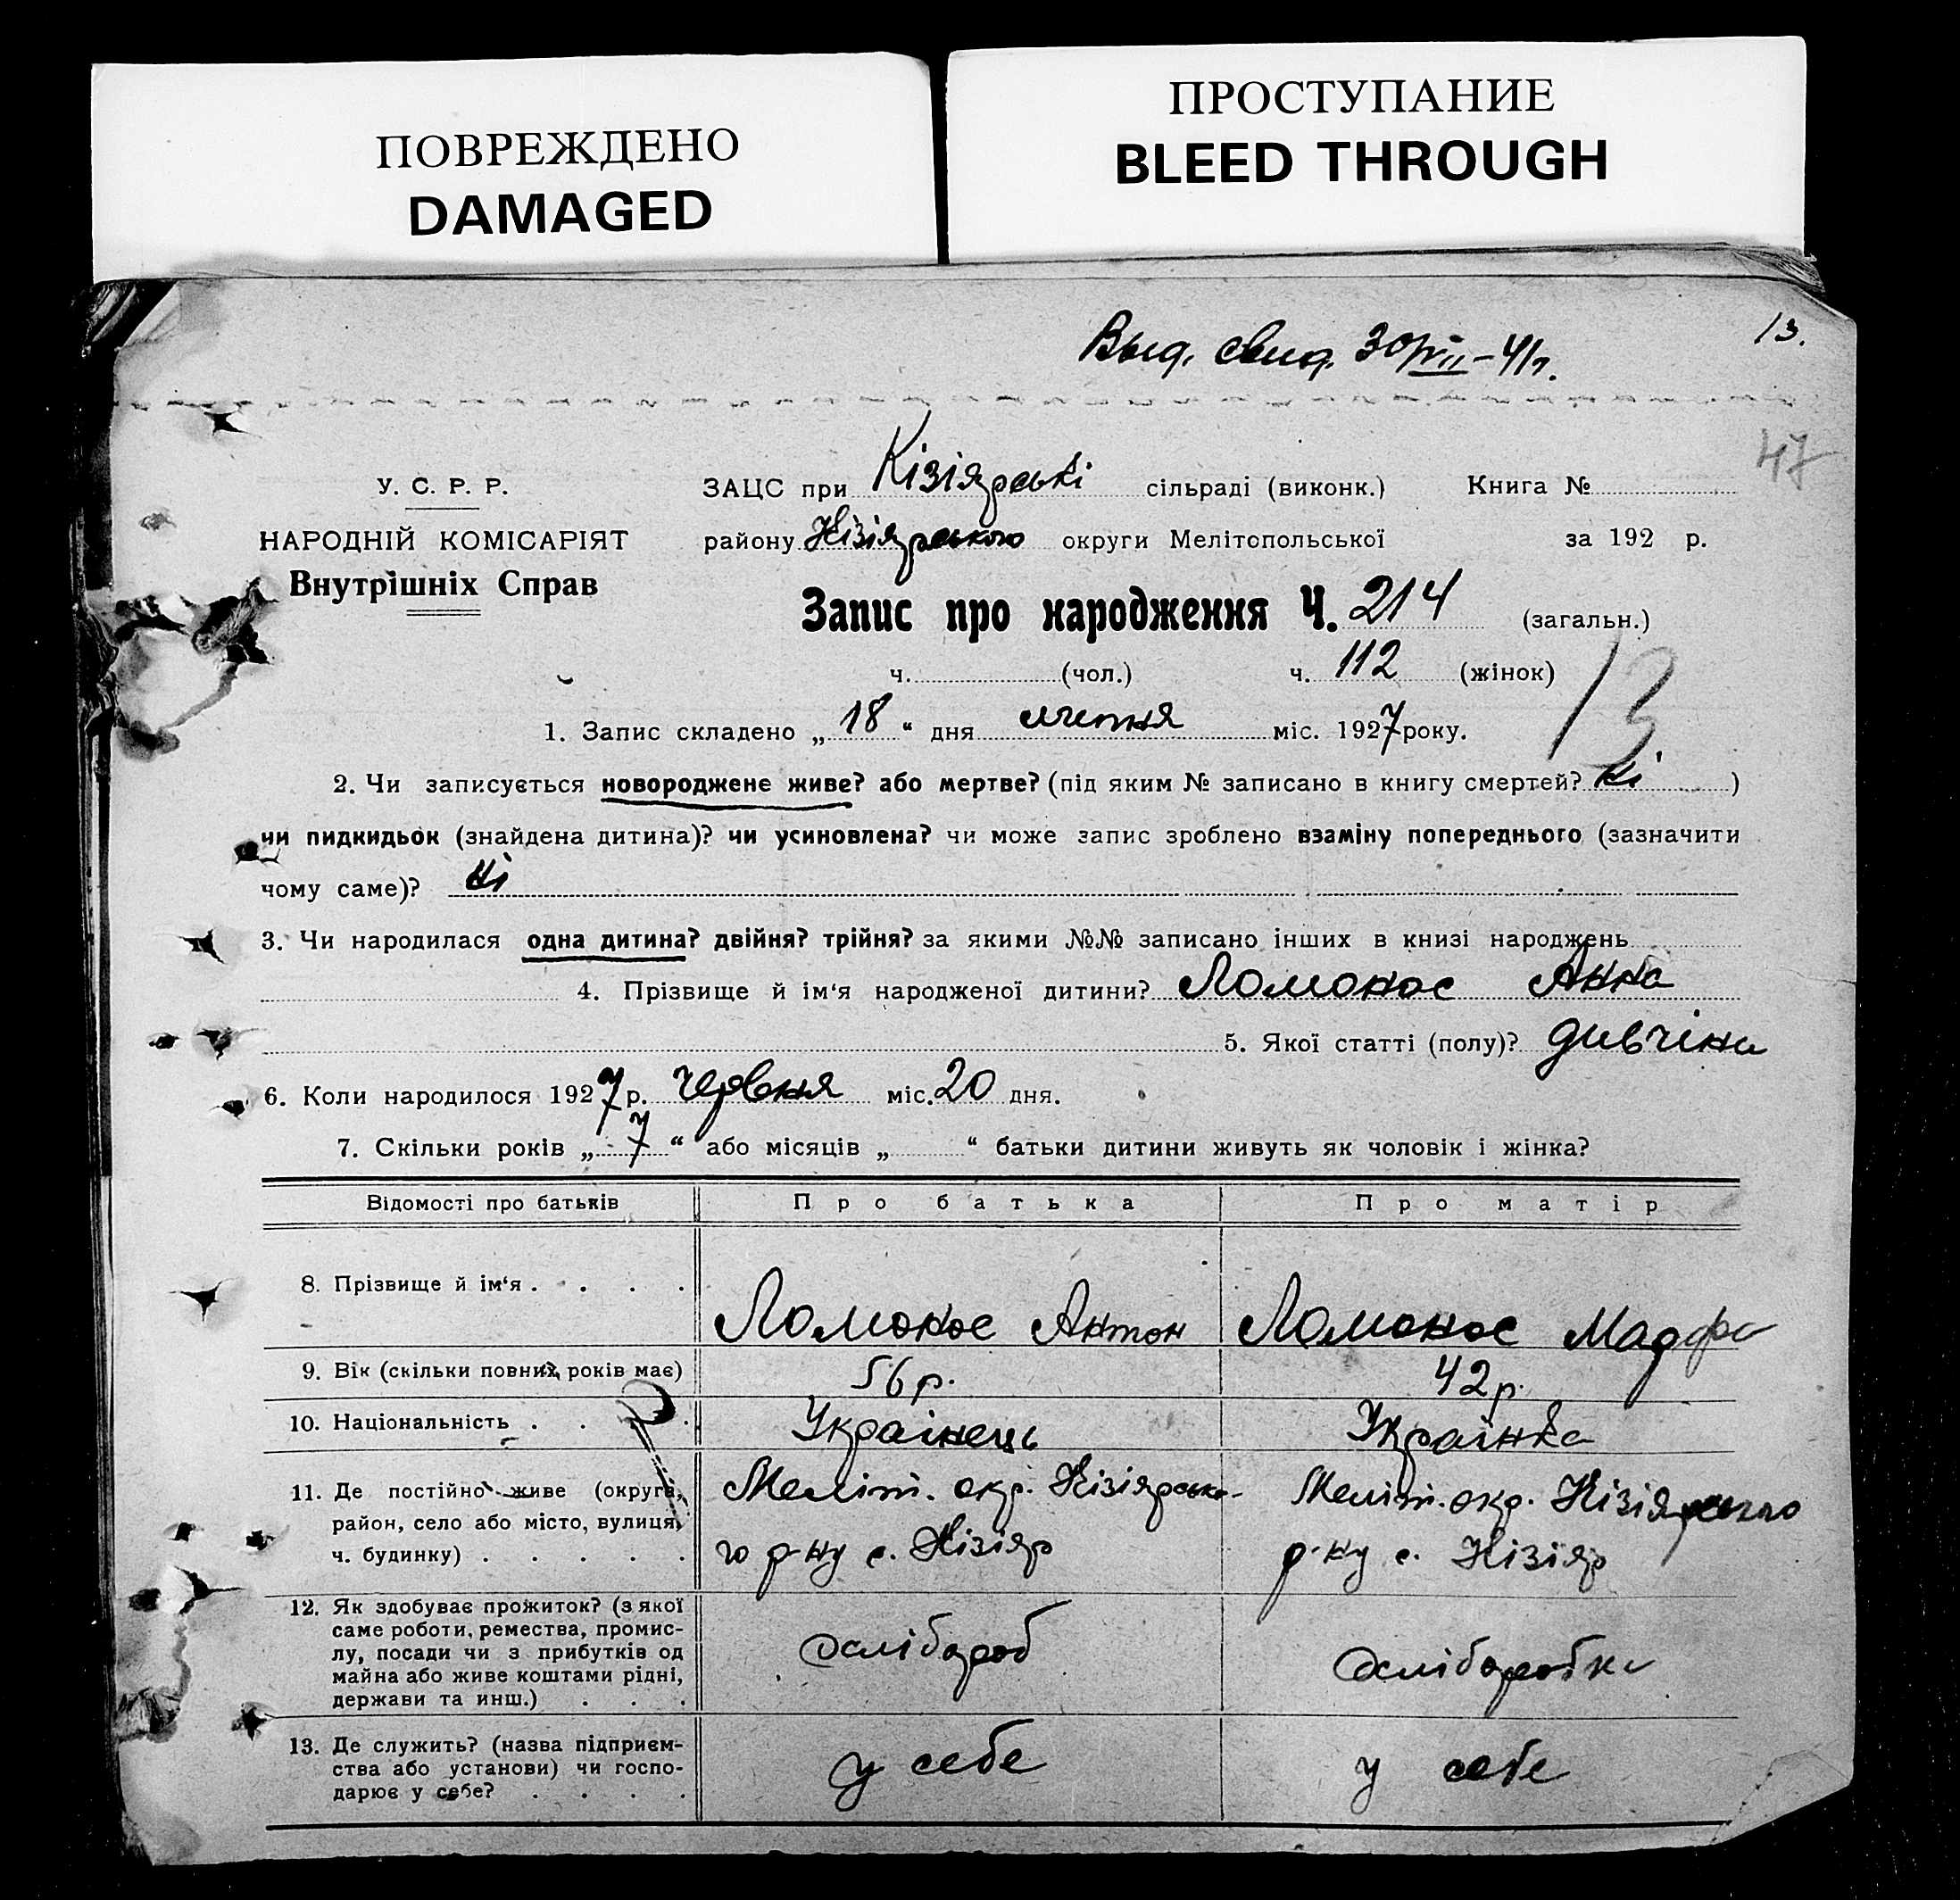 ПОВРЕЖДЕНО
DAMAGED
ПРОСТУПАНИЕ
BLEED THROUGH
13.
Выд. свид. 30/VII-41г.
47
У. С. Р. Р.
НАРОДНІЙ КОМІСАРІЯТ
Внутрішніх Справ
ЗАЦС при Кізіярські сільраді (виконк.) Книга №
району Кізіярського округи Мелітопольської за 192 р.
Запис про народження Ч. 214 (загальн.)
ч. (чол.) ч. 112 (жінок)
13.
1. Запис складено „ 18 “ дня липня міс. 1927 року.
2. Чи записується новороджене живе? або мертве? (під яким № записано в книгу смертей? ні )
чи пидкидьок (знайдена дитина)? чи усиновлена? чи може запис зроблено взаміну попереднього (зазначити
чому саме)? ні
3. Чи народилася одна дитина? двійня? трійня? за якими №№ записано інших в книзі народжень
4. Прізвище й ім‘я народженої дитини? Ломонос Анна
5. Якої статті (полу)? дивчіна
6. Коли народилося 1927 р. червня міс. 20 дня.
7. Скільки років „ 7 “ або місяців „ “ батьки дитини живуть як чоловік і жінка?
Відомості про батьків Про батька Про матір
8. Прізвище й ім‘я . . . . Ломонос Антон Ломонос
9. Вік (скільки повних років має) 56 р. 42 р.
10. Національність . . . Українець Українка
11. Де постійно живе (округа, Меліт. окр. Кізіярсько- Меліт. окр. Кізіярського
район, село або місто, вулиця,
ч. будинку) . . . . . го р-ну с. Кізіяр р-ну с. Кізіяр
12. Як здобуває прожиток? (з якої
саме роботи, ремества, промис-
лу, посади чи з прибутків од хлібороб хліборобка
майна або живе коштами рідні,
держави та инш.) . . .
13. Де служить? (назва підприєм-
ства або установи) чи госпо- у себе у себе
дарює у себе? . . . .